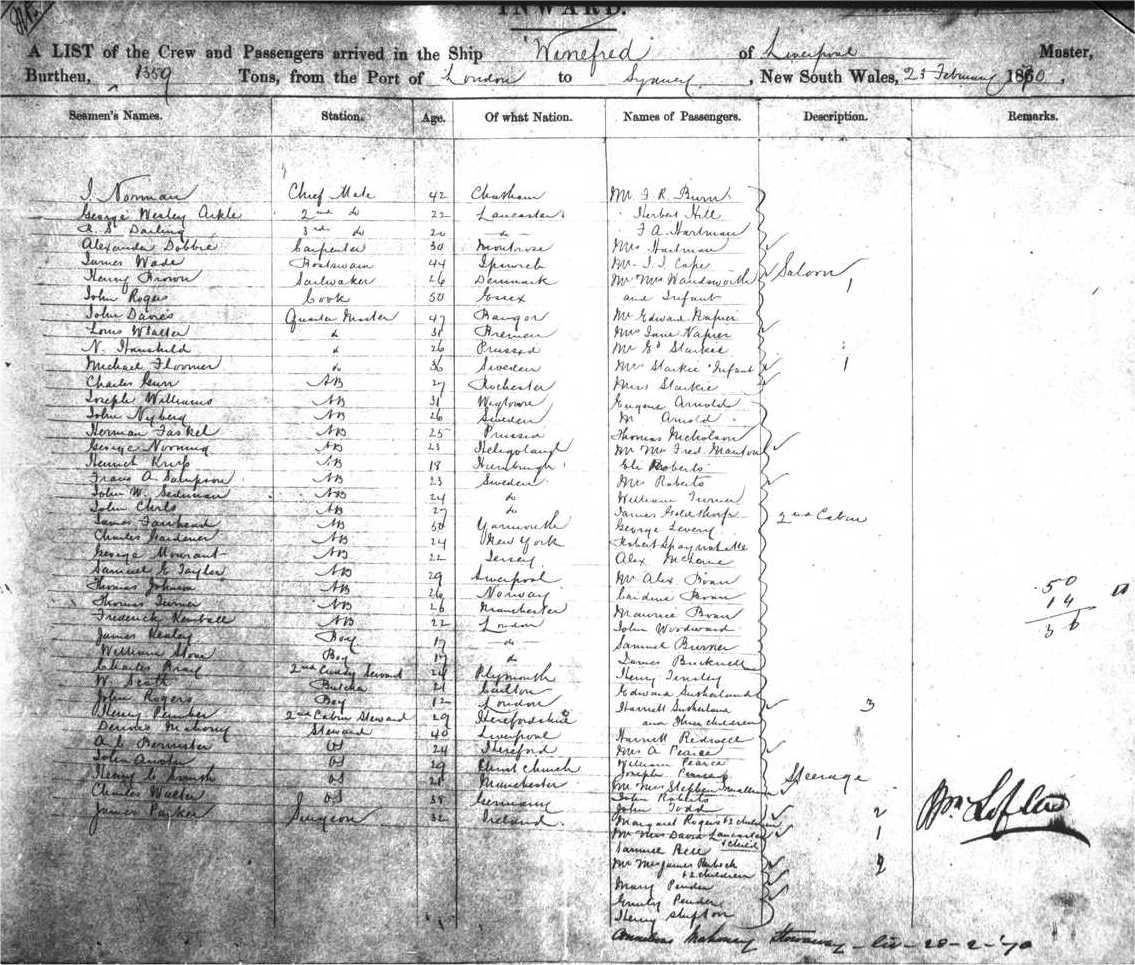 INWARD.
A LIST of the Crew and Passengers arrived in the Ship Winefred of Liverpool Master,
Burthen, 1359 Tons, from the Port of London to Sydney, New South Wales, 23 February 1870.
Seamen's Names. Station. Age. Of what Nation. Names of Passengers. Description. Remarks.
J. Norman Chief Mate 42 Chatham Mr F R Burn
George Wesley Arkle 2nd do 22 Lancaster Herbert Hill
R. S. Darling 3rd do 20 do F A Hartman
Alexander Dobbie Carpenter 30 Montrose Mrs Hartman
James Wade Boatswain 44 Ipswich Mr J. J. Cape Saloon
Henry Brown Sailmaker 26 Denmark Mr Mrs Wandsworth 1
John Rogers Cook 50 Essex and Infant
John Davies Quarter Master 47 Bangor Mr Edward Napier
Louis Walter do 31 Bremen Mrs Jane Napier
N. do 26 Prussia Mr Ed Starkie
Michael do 36 Sweden Mrs Starkie Infant 1
Charles Gurr AB 27 Rochester Miss Starkie
Joseph Williams AB 31 Wigtown Eugene Arnold
John Nyberg AB 26 Sweden M Arnold
Herman Faskel AB 25 Prussia Thomas Nicholson
George AB 23 Heligoland Mr Mrs Fred Manton
Heinrich AB 18 Hamburgh Eli Roberts
Frans A Sampson AB 23 Sweden Mrs Roberts
John W. AB 24 do William Turner
John AB 27 do James Goldthorpe 2nd Cabin
James Fairhead AB 50 Yarmouth George Levery
Charles Gardener AB 24 New York Robert
George Mourant AB 22 Jersey Alex
Samuel E Taylor AB 29 Liverpool Mr Alex Boan 50
Thomas Johnson AB 26 Norway Caroline Boan 14
Thomas Turner AB 26 Manchester Maurice Boan 36
Frederick Kemball AB 22 London John Woodward
James Kealey Boy 17 do Samuel Burner
William Stone Boy 17 do James Bucknell
Charles Bray 2nd Cuddy Servant 24 Plymouth Henry Tinsley
W. Scott Butcher 21 Carlton Edward Sutherland
John Rogers Boy 12 London Harriett Sutherland 3
Henry Pember 2nd Cabin Steward 29 Herefordshire and three children
Dennis Mahony Steward 40 Liverpool Harriett Redwell
A. C. Bannister OS 24 Hereford Mrs A Pearce
John OS 29 Christchurch William Pearce
Henry C OS 21 Manchester Joseph Pearce Steerage
Charles Walter OS 38 Germany Mr Mrs Stephen
James Parker Surgeon 32 Ireland John Roberts
John Todd 2
Margaret Rogers & 2 children
Mr Mrs David Lancaster & child 1
Samuel Bell
Mr Mrs James & 2 children 2
Mary Pender
Emily Pender
Henry Shipton
Cornelius Mahoney Stowaway 28-2-70